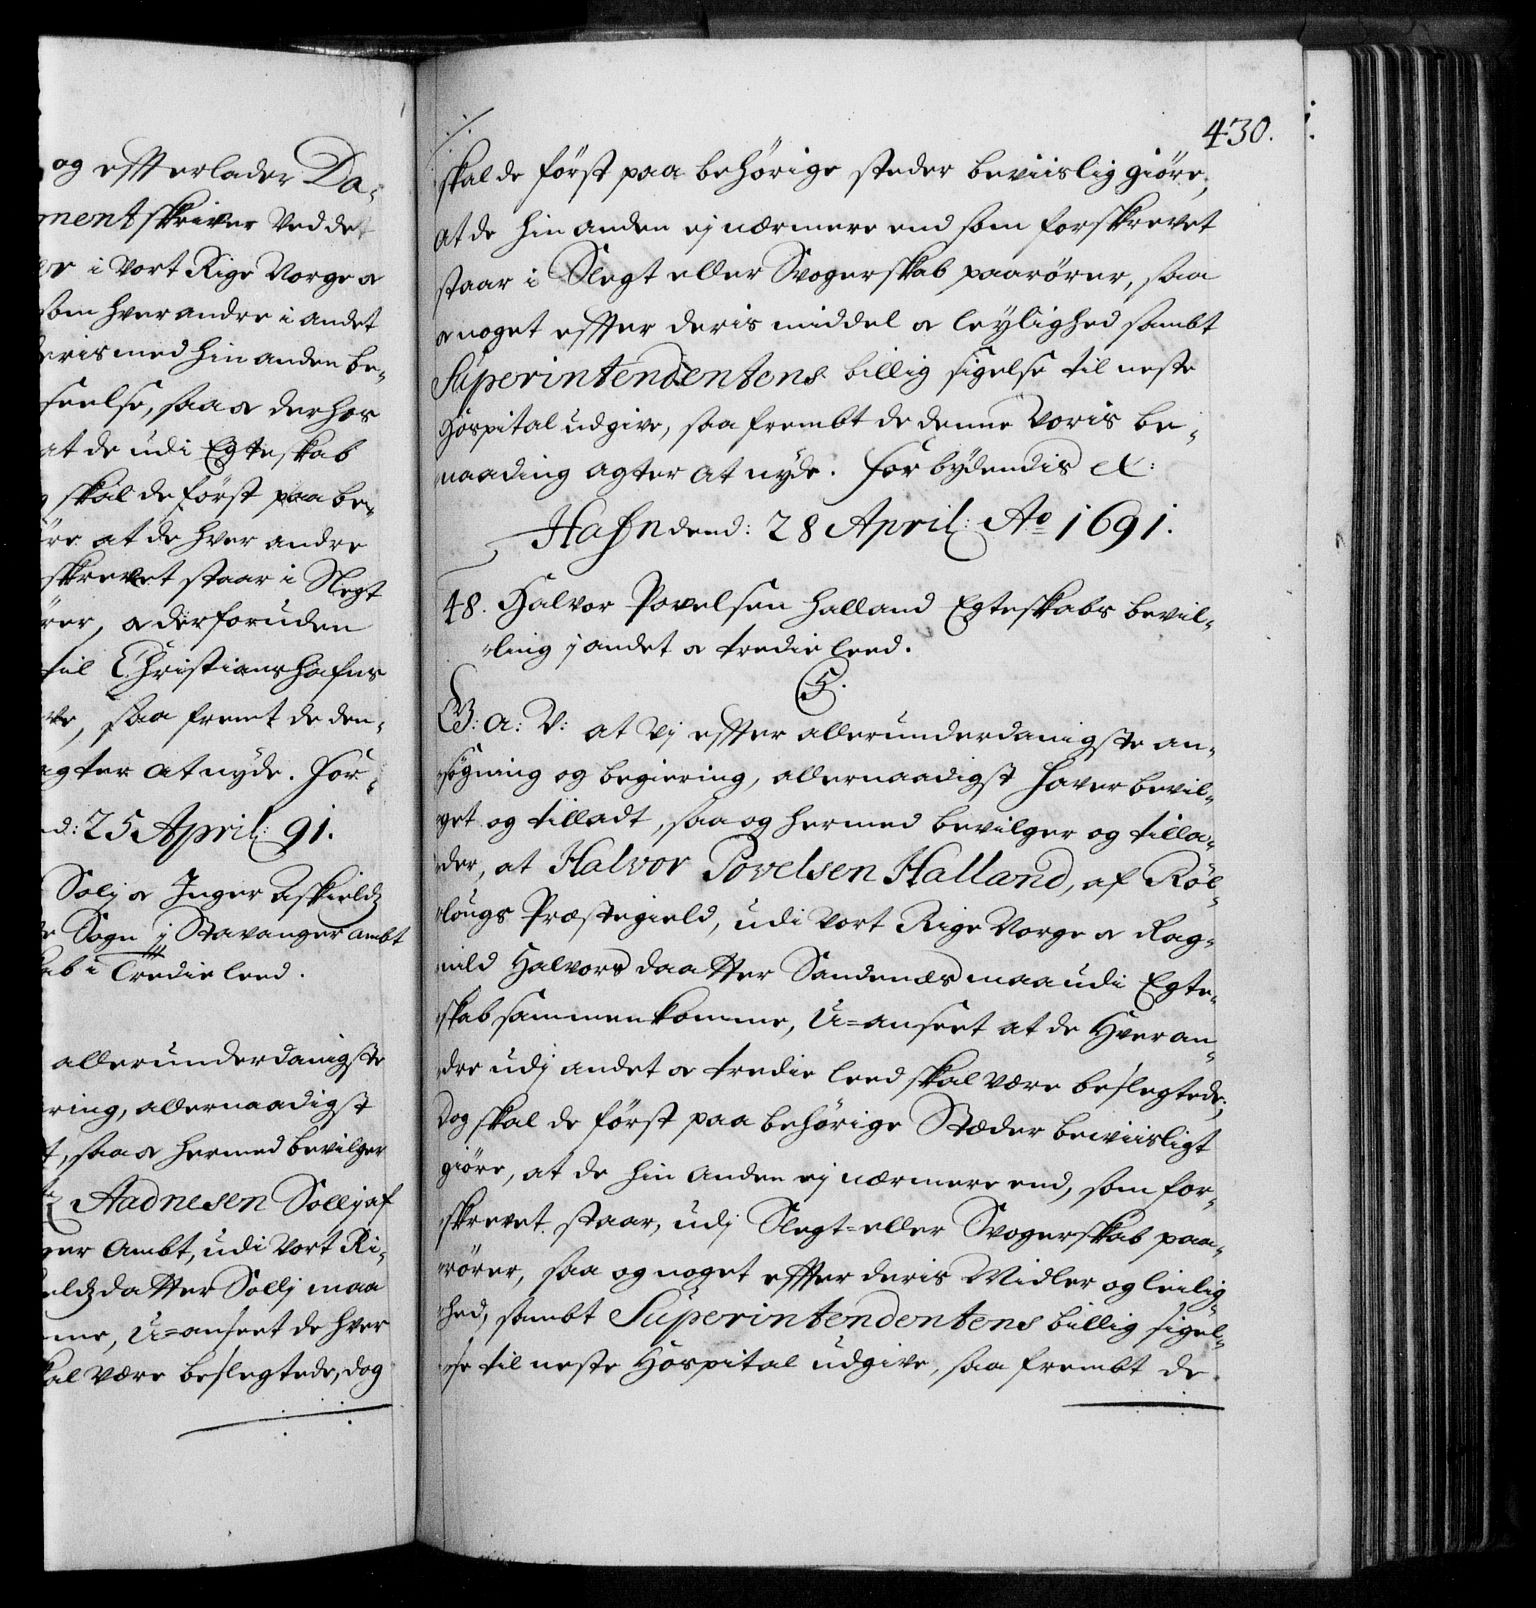 og efterlader Da-
ment skriver ved det
i vort Rige Norge &
som hverandre i andet
deris med hin anden be-
seelse, saa & derhos
at de udi Egteskab
skal de først paa be-
øre at de hver andre
skrevet staar i Slegt
rører, & derforuden
til Christianshafns
ve, saa fremt de den-
agter at nyde. For-
d: 25 April: 91.
Solj & Inger Askieldz
Sogn j Stavanger ambt
kab i Tredie leed.
allerunderdanigste
ring, allernaadigst
t, saa & hermed bevilger
Aadnesen Sollj af
ger Ambt, udi vort Ri-
eldzdatter Sollj maa
me, u=anseet de hver
kal være beslegtede, dog
430.
skal de først paa behørige steder beviislig giøre,
at de hin anden ej nærmere end som forskrevet
staar i Slegt eller Svogerskab paarører, saa
& noget effter deris middel & leylighed sambt
Superintendentens billig sigelse til neste
Hospital udgive, saa frembt de denne Voris be-
naading agter at nyde. Forbydendis etc:
Hafn dend: 28 April: Ao 1691.
48. Halvor Povelsen Halland Egteskabs bevil-
ling j andet & tredie leed.
C5.
G: A: V: at Vj effter allerunderdanigste an-
søgning og begiering, allernaadigst haver bevil-
get og tilladt, saa og hermed bevilger og tilla-
der, at Halvor Povelsen Halland, af Røl-
lougs Præstegield, udi Vort Rige Norge & Rag-
nild Halvors daatter Sandenæs maa udi Egte-
skab sammenkomme, U=anseet at de Hveran-
dre udj andet & tredie leed skal være beslegtede,
Dog skal de først paa behørige Stæder beviisligt
giøre, at de hin anden ej nærmere end, som for-
skrevet staar, udj Slegt= eller Svogerskab paa-
rører, saa og noget effter deris Midler og leilig-
hed, sambt Superintendentens billig sigel-
se til neste Hospital udgive, saa frembt de